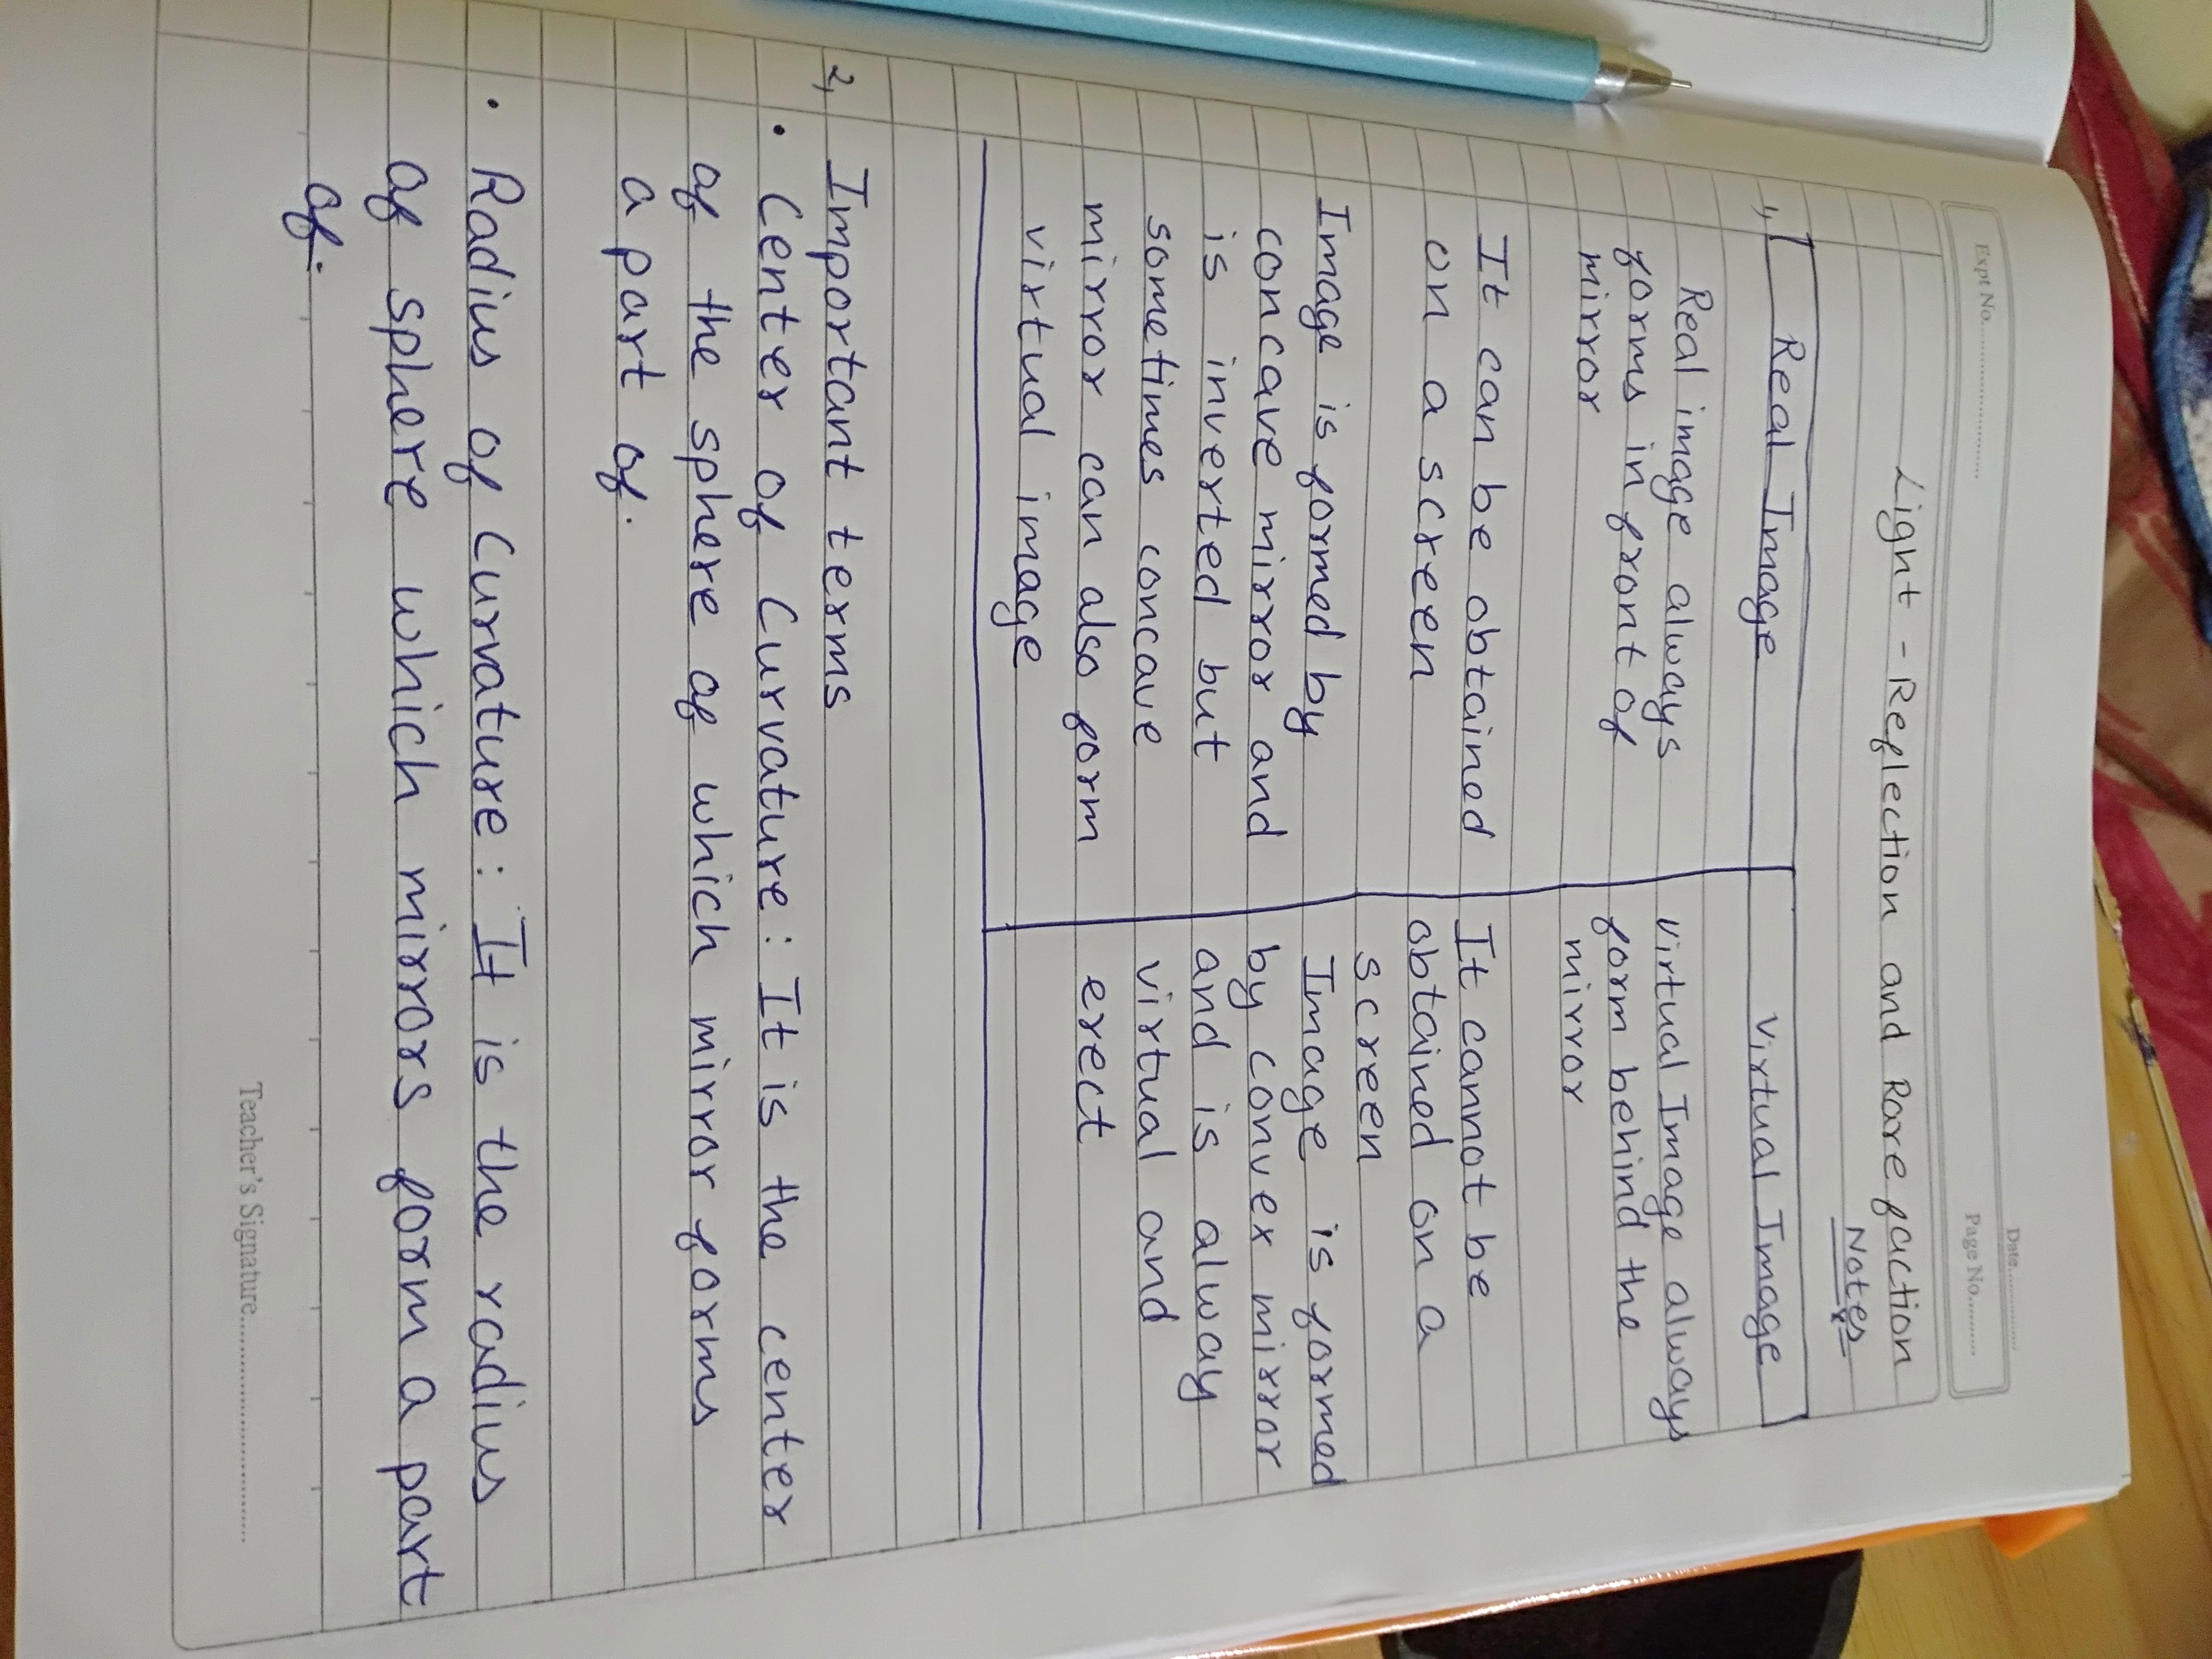 Date............
Expt No.................... Page No..........
Light - Reflection and Rarefaction
Notes
1, Real Image Virtual Image
Real image always
forms in front of
mirror
It can be obtained
on a screen
Image is formed by
concave mirror and
is inverted but
sometimes concave
mirror can also form
virtual image
Virtual Image always
form behind the
mirror
It cannot be
obtained on a
screen
Image is formed
by convex mirror
and is alway
virtual and
erect
2, Important terms
• Center of Curvature: It is the center
of the sphere of which mirror forms
a part of.
• Radius of Curvature: It is the radius
of sphere which mirrors form a part
of.
Teacher's Signature..............................